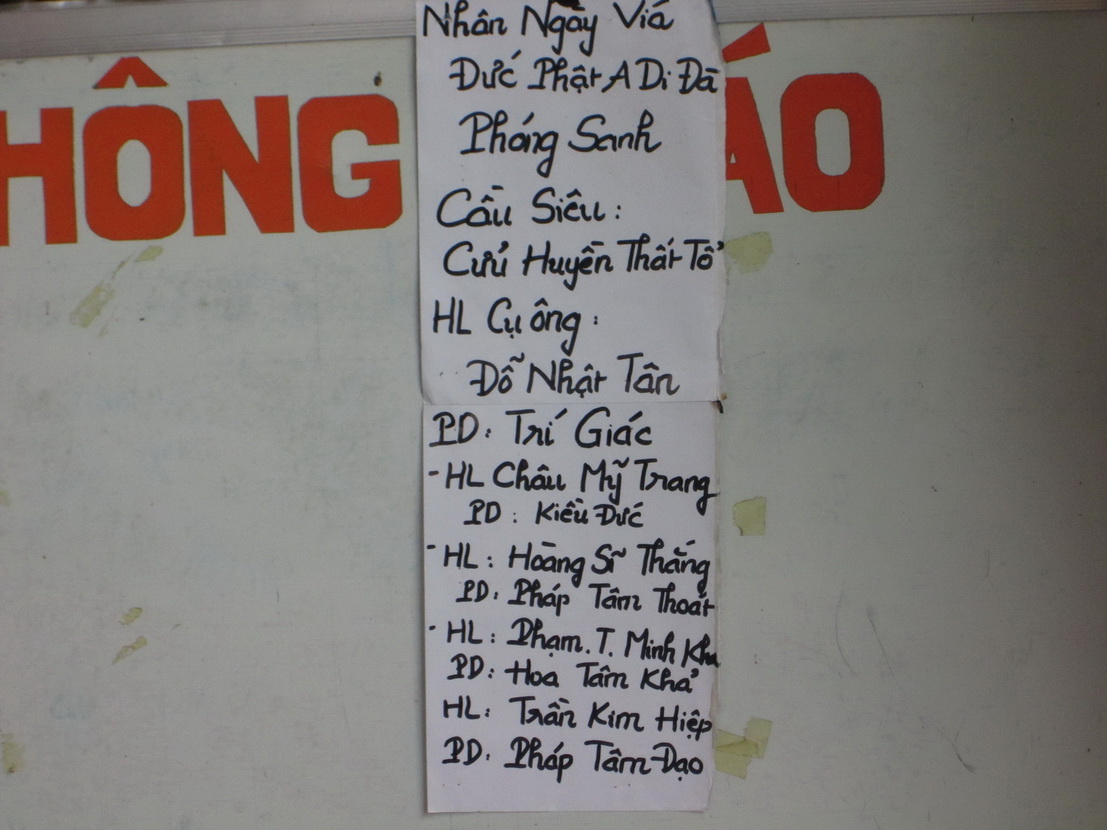 HÔNG ÁO
Nhân Ngày Viá
Đức Phật A Di Đà
Phóng Sanh
Cầu Siêu:
Cửu Huyền Thất Tổ
HL Cụ ông:
Đỗ Nhật Tân
PD: Trí Giác
- HL Châu Mỹ Trang
PD: Kiều Đức
- HL: Hoàng Sĩ Thắng
PD: Pháp Tâm Thoát
- HL: Phạm. T. Minh
PD: Hoa Tâm Khả
HL: Trần Kim Hiệp
PD: Pháp Tâm-Đạo